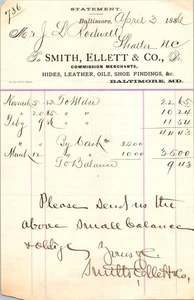 736
STATEMENT.
Baltimore, April 3 188
Mr J. D. Rockwell
Shatter NC
To SMITH, ELLETT & CO., Dr.
COMMISSION MERCHANTS,
HIDES, LEATHER, OILS, SHOE FINDINGS, &c.
BALTIMORE, MD.
To Mdse 22 65
" "
Feby 9 " " 11
44 43
By Cash 2500
March 12 " " 1000 3500
To Balance 9 43
Please send us the
above small balance
& oblige
Yours &c
Smith Ellett & Co,